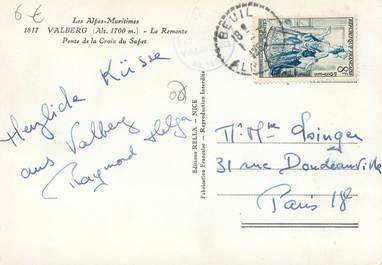 6 €
Les Alpes-Maritimes
1817 VALBERG (Alt. 1700 m.) - Le Remonte
Pente de la Croix du Sapet
Herzliche Küsse
aus Valberg
Raymond Helga
Editions RELLA - NICE
Fabrication Française - Reproduction Interdite
BEUIL
18
POSTES
REPUBLIQUE FRANÇAISE
8F
Mme Loinger
31 rue Doudeauville
Paris 18